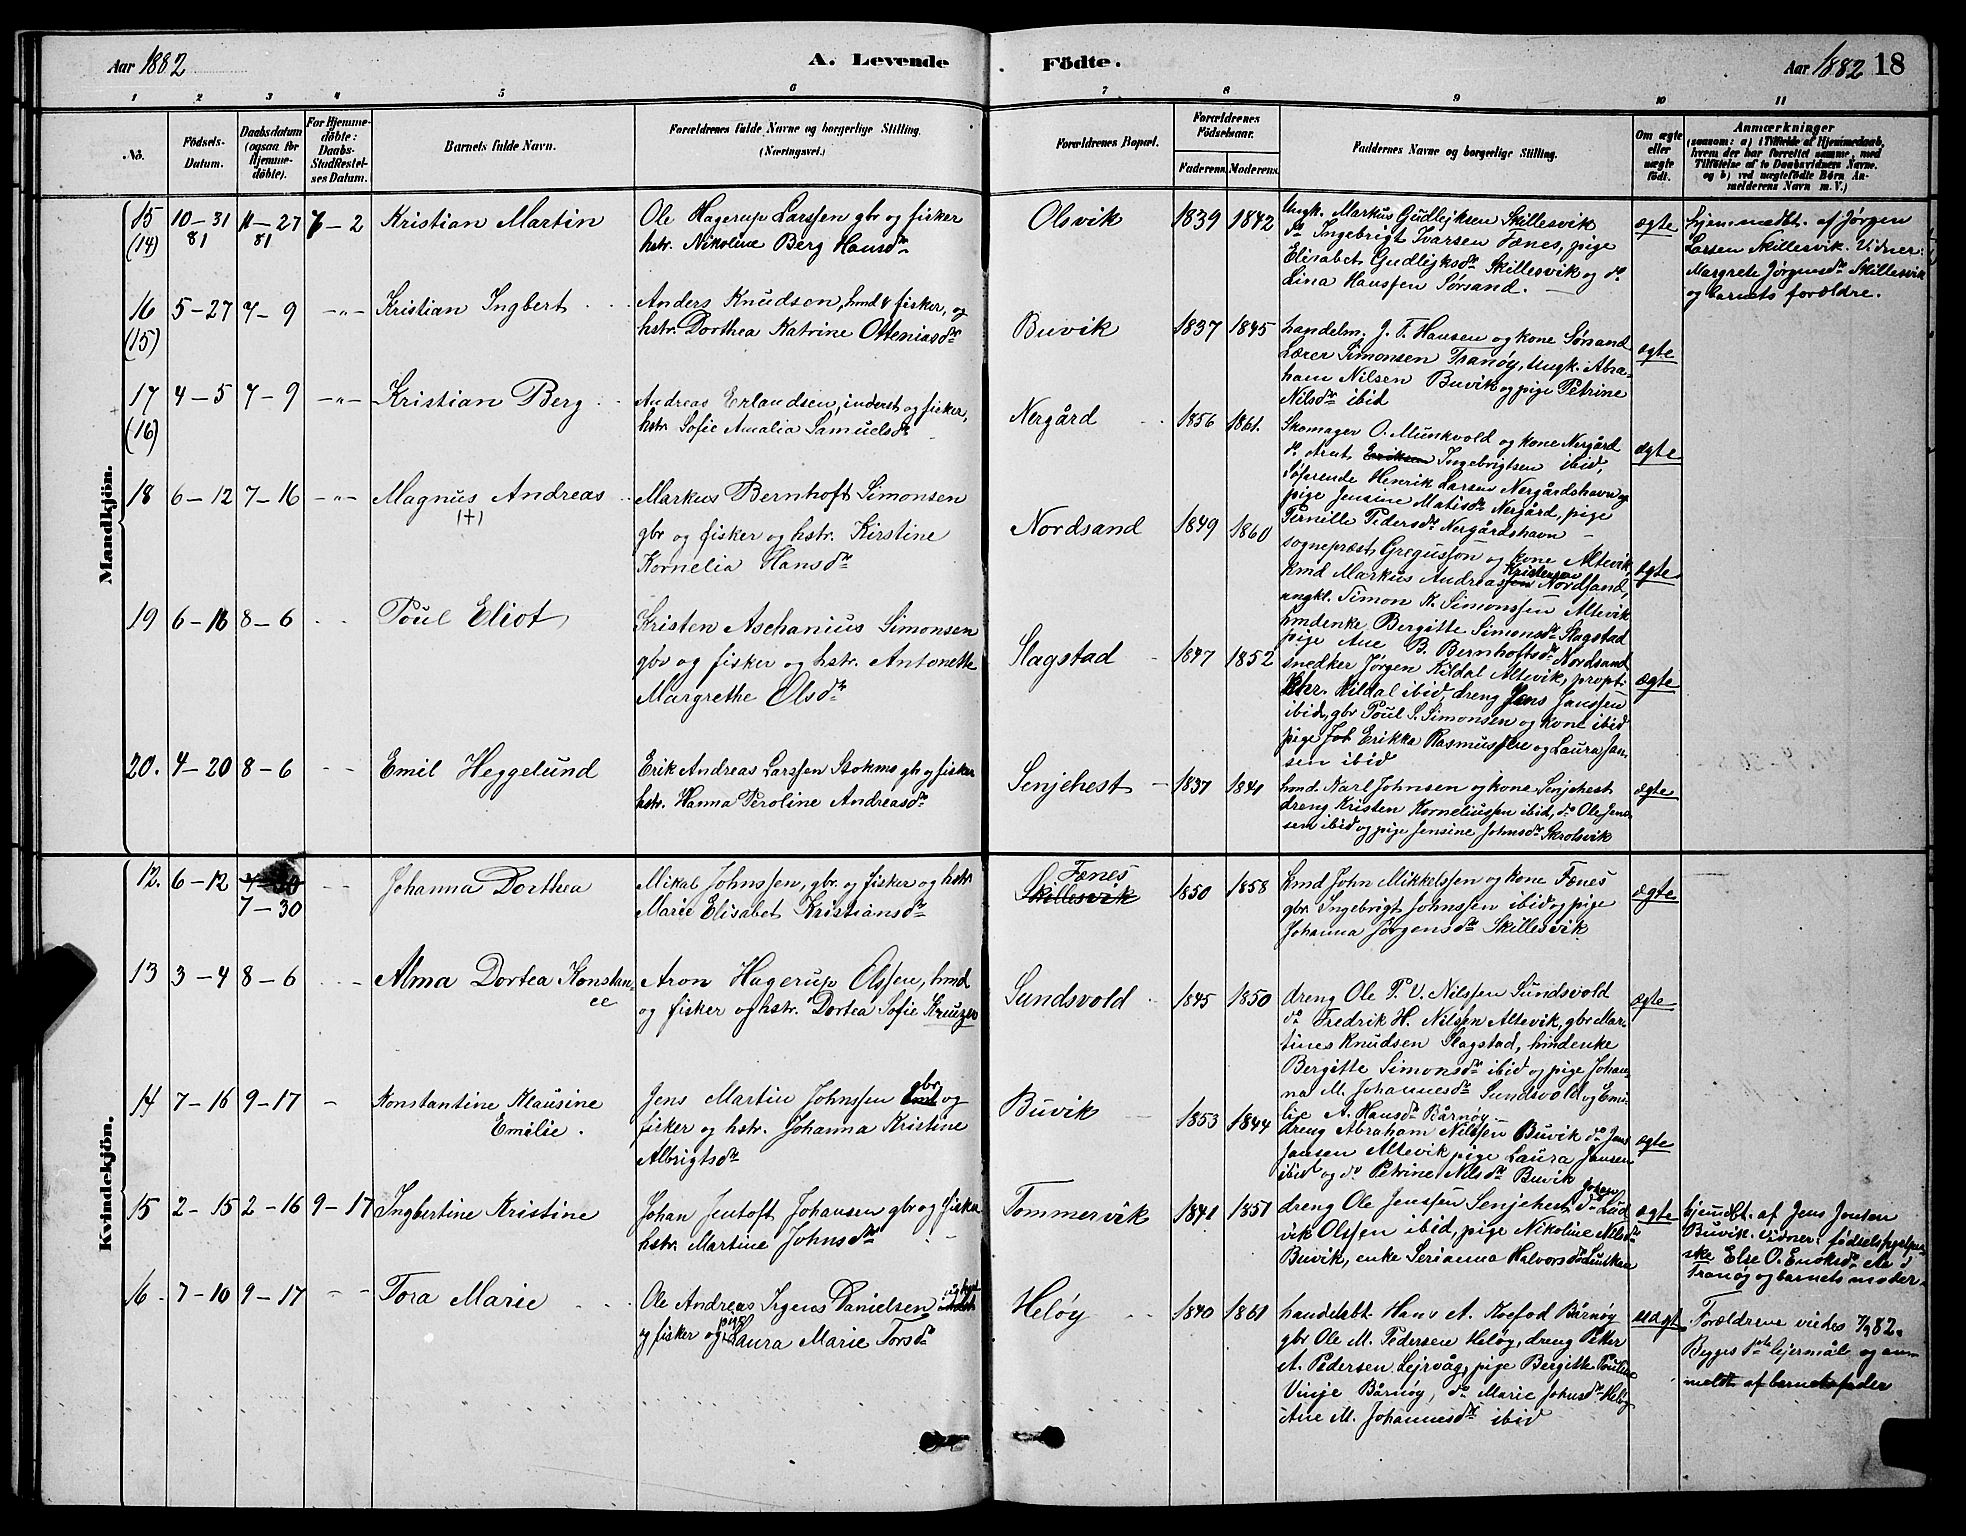 Aar 1882
A. Levende
Födte.
Aar 1882 18
1 2 3 4 5 6 7 8 9 10 11
No.
Födsels-
Datum.
Daabsdatum
(ogsaa for
Hjemme-
döbte).
For Hjemme-
döbte:
Daabs-
Stadfæstel-
ses Datum.
Barnets fulde Navn.
Forældrenes fulde Navne og borgerlige Stilling.
(Næringsvei.)
Forældrenes Bopæl.
Forældrenes
Födselsaar.
Faderens. Moderens.
Faddernes Navne og borgerlige Stilling.
Om ægte
eller
uægte
født.
Anmærkninger
(saasom: a) i Tilfælde af Hjemmedaab,
hvem der har forrettet samme, med
Tilføielse af to Daabsvidners Navne.
og b) ved uægtefödte Börn An-
melderens Navn m. V.)
Mandkjön.
15 (14) 10-31 81 11-27 81 7-2 Kristian Martin
Ole Hagerup Larssen gbr og fisker
hstr. Nikoline Berg Hansdtr
Olsvik 1839 1842
Ungk. Markus Gudlejksen Skillesvik
do Ingebrigt Ivarsen Fænes, pige
Elisabet Gudlejksdtr Skillesvik og do
Lina Hanssen Sørsand.
ægte
hjemmedbt. af Jørgen
Larsen Skillesvik. Vidner:
Margrete Jørgensdtr Skillesvik
og barnets forældre.
16 (15) 5-27 7-9 -"- Kristian Ingbert
Anders Knudsen, hmd & fisker, og
hstr. Dorthea Katrine Otteniasdtr
Buvik 1837 1845
handelm. J. F. Hansen og kone Sørsand
Lærer Simonsen Tranøy, Ungk. Abra-
ham Nilsen Buvik og pige Petrine
Nilsdtr ibid
ægte
17 (16) 4-5 7-9 -"- Kristian Berg
Andreas Erlandsen, inderst og fisker,
hstr. Sofie Amalia Samuelsdtr
Nergård 1856 1861
Skomager O. Munkvold og kone Nergård
do Arnt Eriksen Ingebrigtsen ibid,
Søfarende Henrik Larsen Nergårdshavn og
pige Jensine Matisdtr Nergård, pige
Pernille Pedersdtr Nergårdshavn
ægte
18 6-12 7-16 -"- Magnus Andreas
(+)
Markus Bernhoft Simonsen
gbr og fisker og hstr. Kirstine
Kornelia Hansdtr
Nordsand 1849 1860
sognepræst Gregussen og kone Altevik,
kmd Markus Andreassen Kristensen Nordsand,
ungkl. Simon K. Simonssen Altevik
hmdenke Bergitte Simonsdtr Slagstad
pige Ane B. Bernhoftsdtr Nordsand
ægte
19 6-16 8-6 Poul Eliot
Kristen Aschanius Simonsen
gbr og fisker og hstr. Antonette
Margrethe Olsdtr
Slagstad 1847 1852
snedker Jørgen Kildal Altevik, propt.
Chr. Kildal ibid, dreng Jens Janssen
ibid, gbr Poul S. Simonsen og kone ibid
pige Erikka Rasmussen og Laura Jan-
sen ibid
ægte
20. 4-20 8-6 Emil Heggelund
Erik Andreas Larssen Stokms gb og fisker
hstr. Hanna Peroline Andreasdtr
Senjehest 1837 1841
hmd. Karl Johnsen og kone Senjehest
dreng Kristen Korneliussen ibid, do Ole Jens-
sen ibid og pige Jensine Johnsdtr Skrolsvik
ægte
Kvindekjön.
12. 6-12 7-30 7-30 Johanna Dorthea
Mikal Johnssen, gbr. og fisker og hstr
Marie Elisabet Kristiansdtr
Fænes
Skillesvik 1850 1858
hmd John Mikkelssen og kone Fænes
gbr. Ingebrigt Johnssen ibid og pige
Johanna Jørgensdtr Skillesvik
ægte
13 3-4 8-6 Alma Dortea Konstan-
ce
Aron Hagerup Olssen, hmd
og fisker og hstr. Dortea Sofie Kreutzer
Sundsvold 1845 1850
dreng Ole P. V. Nilssen Sundsvold
do Fredrik H. Nilsen Altevik, gbr Mar-
tines Knudsen Slagstad, hmdenke
Bergitte Simonsdtr ibid og pige Johan-
na M. Johannesdtr Sundsvold og Emi-
lie A. Hansdtr Bårnøy
ægte
14 7-16 9-17 Konstantine Klausine
Emilie.
Jens Martin Johnssen hmd gbr og
fisker og hstr. Johanna Kristine
Albrigtsdtr
Buvik 1853 1844
dreng Abraham Nilssen Buvik do Jens
Jansen Altevik pige Laura Jansen
ibid og do Petrine Nilsdtr Buvik
ægte
15 2-15 2-16 9-17 Ingbertine Kristine
Johan Jentoft Johansen gbr og fisker
hstr. Martine Johnsdtr
Tommervik 1841 1851
dreng Ole Jenssen Senjehest, do Johan Lud-
vik Olssen ibid, pige Nikoline Nilsdtr
Buvik, enke Serianna Halvorsdtr
ægte
hjemdbt. af Jens Jensen
Buvik. Vidner: fødselshjelper-
ske Else O. Enoksdtr
Tranøy og barnets moder.
16. 7-10 9-17 Tora Marie
Ole Andreas Irgens Danielsen
og fisker og pige Laura Marie Torsdtr
Heløy 1840 1861
handelsbt. Hans A. Koefod Bårnøy
gbr Ole M. Pedersen Heløy, dreng Petter
A. Pedersen Lejrvåg, pige Bergitte Pauline
Vinje Bårnøy, do Marie Johnsdtr Heløy
Ane M. Johannesdtr ibid
uægte
Forældrene viedes 7/9 82.
Begges 1ste lejermål og an-
meldt af barnets fader